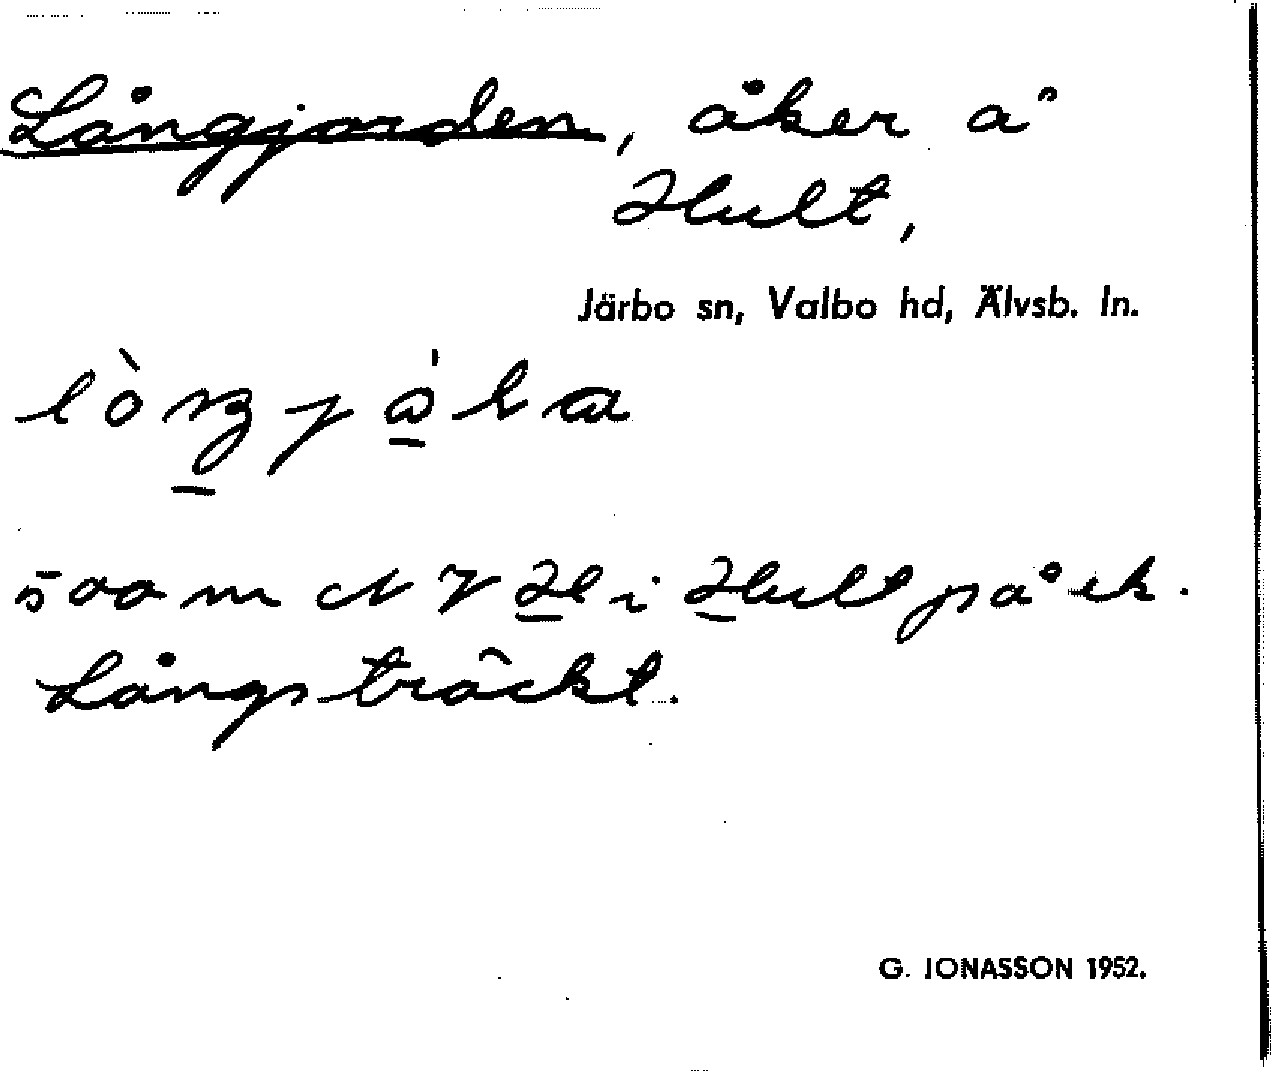 Långjorden, åker å
Hult,
Järbo sn, Valbo hd, Älvsb. ln.
500 m NV Hl i Hult på ek.
Långsträckt.
G. JONASSON 1952.